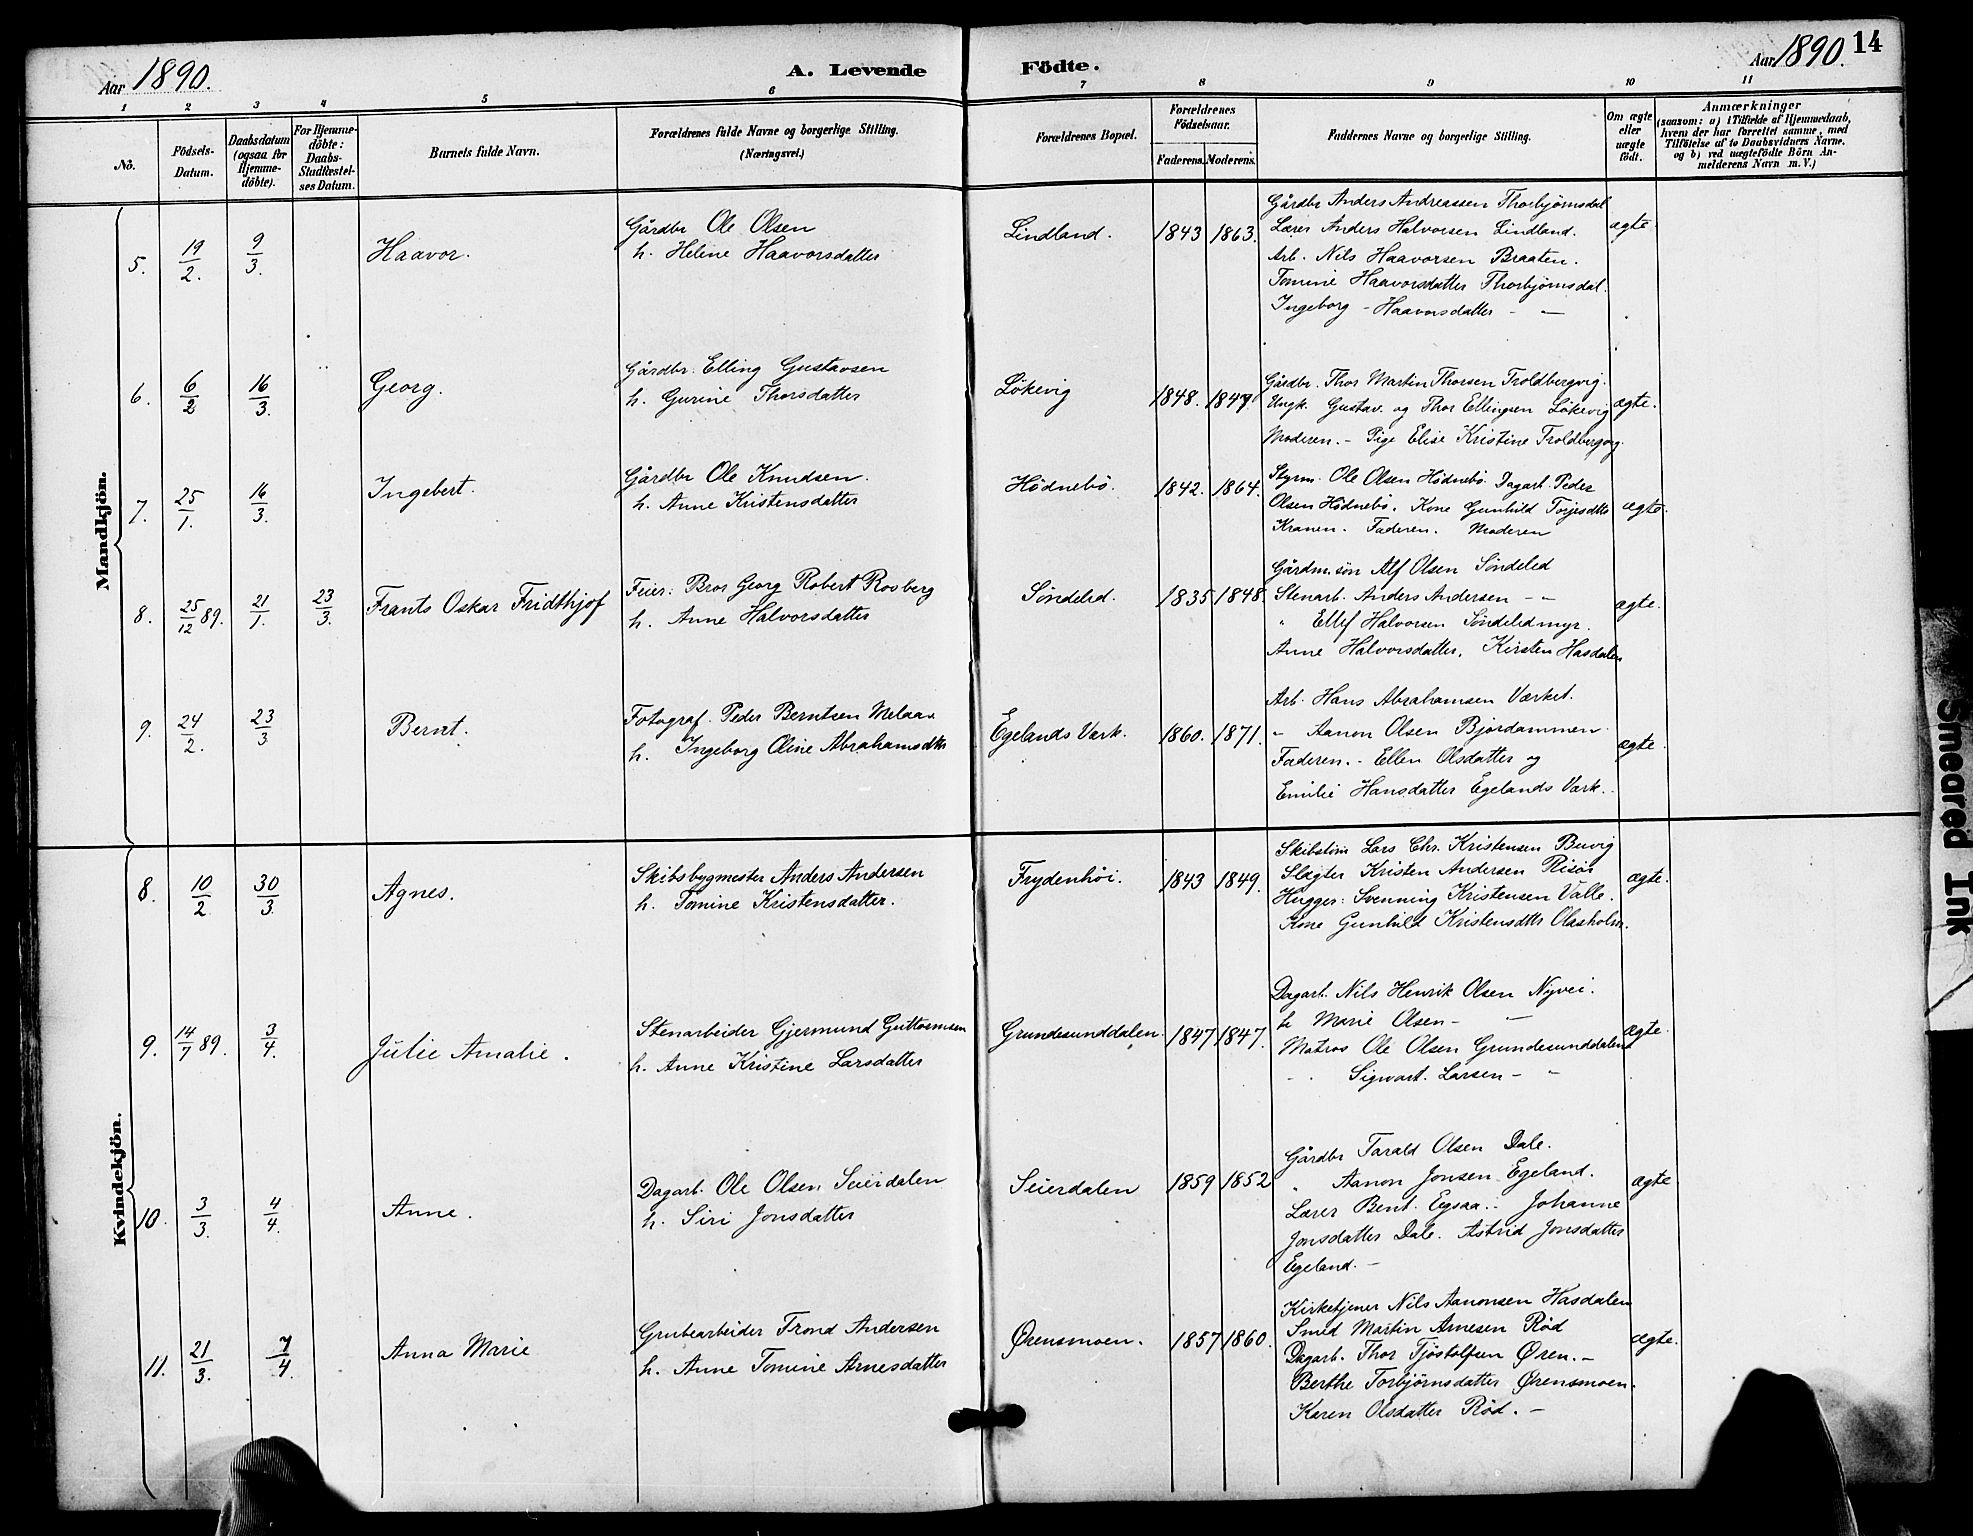 Aar 1890.
A. Levende Födte.
Aar 1890.
14
1 2 3 4 5 6 7 8 9 10 11
No.
Födsels-
Datum.
Daabsdatum
(ogsaa for
Hjemme-
döbte).
For Hjemme-
döbte:
Daabs-
Stadfæstel-
ses Datum.
Barnets fulde Navn.
Forældrenes fulde Navne og borgerlige Stilling.
(Næringsvei.)
Forældrenes Bopæl.
Forældrenes
Födselsaar.
Faderens. Moderens.
Faddernes Navne og borgerlige Stilling.
Om ægte
eller
uægte
födt.
Anmærkninger
(saasom: a) i Tilfælde af Hjemmedaab,
hvem der har forrettet samme, med
Tilföielse af to Daabsvidners Navne.
og b) ved uægtefödte Börn An-
melderens Navn m. V.)
Mandkjön.
5. 19/2. 9/3. Haavor.
Gårdbr Ole Olsen
h. Helene Haavorsdatter
Lindland. 1843 1863.
Gårdbr Anders Andreassen Thorbjørnsdal
Lærer Anders Halvorsen Lindland.
Arb. Nils Haavorsen Braaten.
Tomine Haavorsdatter Thorbjørnsdal.
Ingeborg - Haavorsdatter - "
ægte.
6. 6/2 16/3. Georg.
Gårdbr. Elling Gustavsen
h. Gurine Thorsdatter
Løkevig 1848.
Gårdbr. Thor Martin Thorsen Troldbergvig.
Ungk. Gustav. og Thor Ellingsen Løkevig
Moderen. - Pige Elise Kristine Troldbergvg.
ægte.
7. 25/1. 16/3. Ingebert.
Gårdbr Ole Knudsen.
h. Anne Kristensdatter
Hødnebø. 1842. 1864.
Styrm. Ole Olsen Hødnebø. Dagarb. Peder
Olsen Hødnebø. Kone Gunhild
Kranen. Faderen. Moderen
ægte.
8. 25/12 89. 21/1. 23/3. Frants Oskar Fridthjof
Feier: Bror Georg Robert Rooberg
h. Anne Halvorsdatter
Søndeled. 1835 1848.
Gårdm. søn Alf Olsen Søndeled
Stenarb. Anders Andersen - "
" Ellef Halvorsen Søndeledmyr.
Anne Halvorsdatter, Kirsten Hasdalen
ægte.
9. 24/2. 23/3 Bernt.
Fotograf. Peder Berntsen
h. Ingeborg Oline Abrahamsdtr
Egelands Værk. 1860. 1871.
Arb. Hans Abrahamsen Værket.
" Aanon Olsen Bjordammen
Faderen. - Ellen Olsdatter og
Emilie Hansdatter Egelands Værk.
ægte.
Kvindekjön.
8. 10/2. 30/3. Agnes.
Skibsbygmester Anders Andersen
h. Tomine Kristensdatter.
Frydenhøi. 1843 1849.
Skibstøm Lars Chr. Kristensen Buvig
Slagter Kristen Andersen Risør
Hugger: Svenning Kristensen Valle.
Kone Gunhild Kristensdtr Olasholm.
ægte.
9. 14/7 89. 3/4. Julie Amalie.
Stenarbeider Gjermund Guttormsen
h. Anne Kristine Larsdatter
Grundesunddalen. 1847 1847.
Dagarb. Nils Henrik Olsen Nyvei.
h Marie Olsen - "
Matros Ole Olsen Grundesunddalen
" Sigvart. Larsen - "
ægte.
10. 3/3. 4/4. Anne.
Dagarb. Ole Olsen Seierdalen
h. Siri Jonsdatter
Seierdalen 1859 1852
Gårdbr Tarald Olsen Dale.
" Aanon Jonsen Egeland.
Lærer Bent. Egsaa. - Johanne
Jonsdatter Dale. Astrid Jonsdatter
Egeland. -
ægte
11. 21/3. 7/4. Anna Marie
Grubearbeider Trond Andersen
h. Anne Tomine Arnesdatter
Ørensmoen. 1857 1860.
Kirketjener Nils Aanonsen Hasdalen
Smed Martin Arnesen Rød
Dagarb. Thor Tjøstolfsen Øren. -
Berthe Torbjørnsdatter Ørensmoen.
Karen Olsdatter Rød. -
ægte.
Smeared Ink